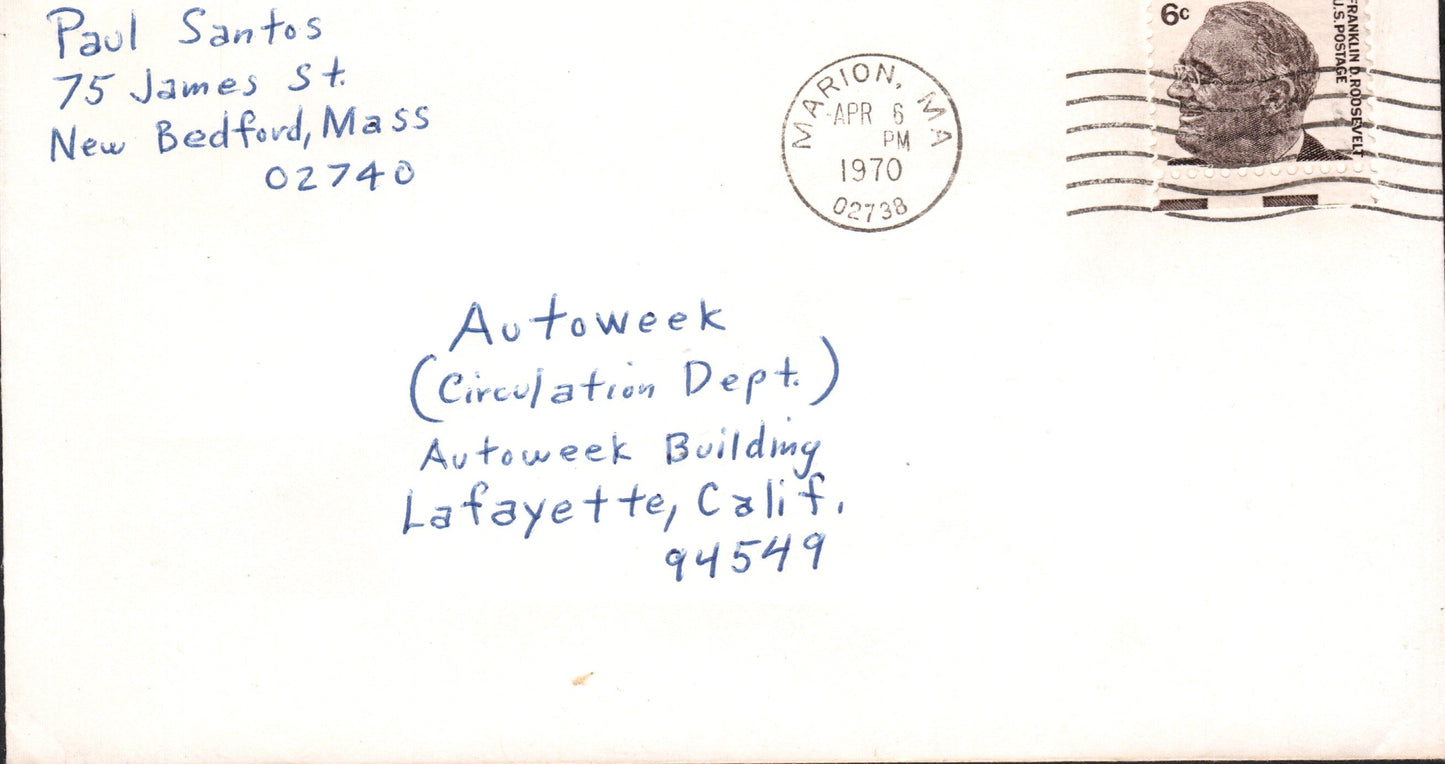 Paul Santos
75 James St.
New Bedford, Mass
02740
MARION, MA
APR 6
PM
1970
02738
6c
FRANKLIN D. ROOSEVELT
U.S. POSTAGE
Autoweek
(Circulation Dept.)
Autoweek Building
Lafayette, Calif.
94549